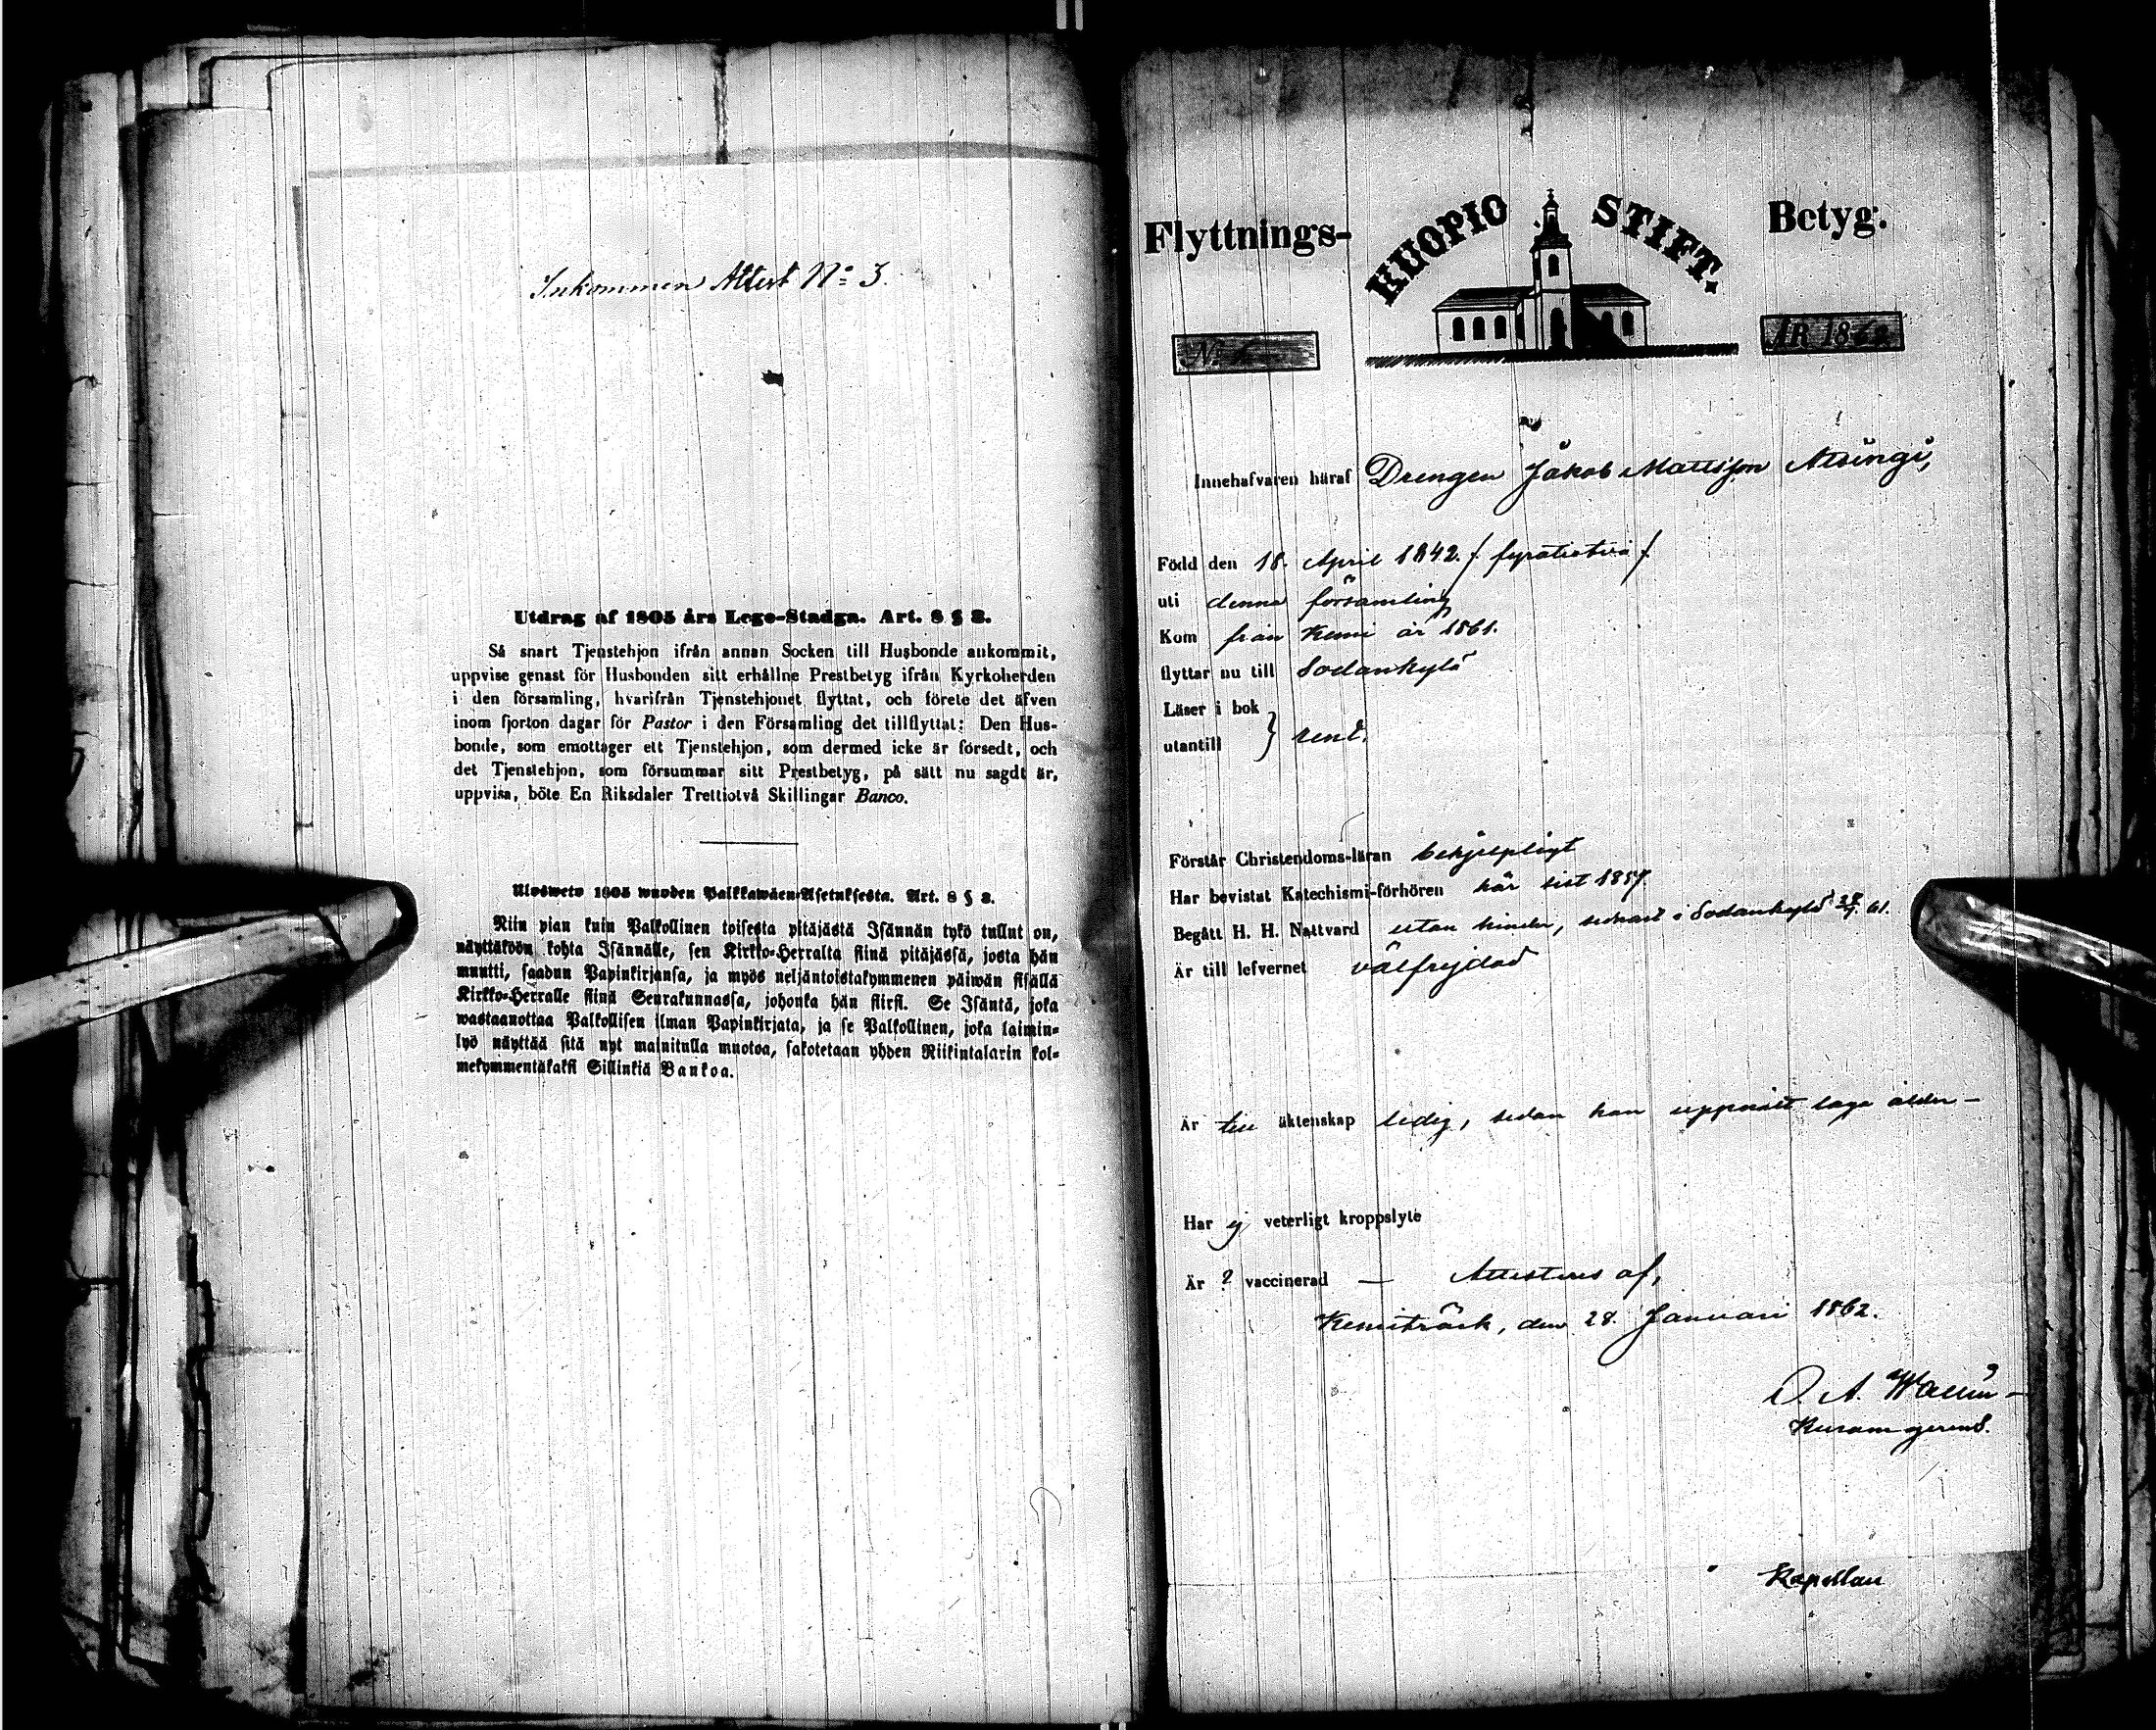 Inkommen Attest No 3.
Utdrag af 1805 års Lego-Stadga. Art. 8 § 2.
Så snart Tjenstehjon ifrån annan Socken till Husbonde ankommit,
uppvise genast för Husbonden sitt erhållne Prestbetyg ifrån Kyrkoherden
i den församling, hvarifrån Tjenstehjonet flyttat, och förete det äfven
inom fjorton dagar för Pastor i den Församling det tillflyttat: Den Hus-
bonde, som emottager ett Tjenstehjon, som dermed icke är försedt, och
det Tjenstehjon, som försummar sitt Prestbetyg, på sätt nu sagdt är,
uppvisa, böte En Riksdaler Trettiotvå Skillingar Banco.
Ulosweto 1805 wuoden Palkkawäen-Asetuksesta. Art. 8 § 2.
Niin pian kuin Palkollinen toisesta pitäjästä Isännän tykö tullut on,
näyttäköön kohta Isännälle, sen Kirkko-Herralta siinä pitäjässä, josta hän
muutti, saadun Papinkirjansa, ja myös neljäntoistakymmenen päiwän sisällä
Kirkko-Herralle siinä Seurakunnassa, johonka hän siirsi. Se Isäntä, joka
wastaanottaa Palkollisen ilman Papinkirjata, ja se Palkollinen, joka laimin-
lyö näyttää sitä nyt mainitulla muotoa, sakotetaan yhden Riikintalarin kol-
mekymmentäkaksi Sillinkiä Bankoa.
Flyttnings- KUOPIO STIFT. Betyg.
No ÅR 1862
Innehafvaren häraf Drengen Jakob Mattsson
Född den 18. April 1842. /: fyratiotvå :/
uti denna församling
Kom från Kemi år 1861.
flyttar nu till Sodankylä
Läser i bok
utantill } rent.
Förstår Christendoms-läran behjelpligt
Har bevistat Katechismi-förhören här sist 1857
Begått H. H. Nattvard utan hinder, senast i Sodankylä 61.
Är till lefvernet välfrejdad
Är till äktenskap ledig, sedan han uppnått laga ålder -
Har ej veterligt kroppslyte
Är ? vaccinerad — Attesteras af,
Kemiträsk, den 28. Januari 1862.
O. A. Wallin -
Kuram gerens.
Kapellan